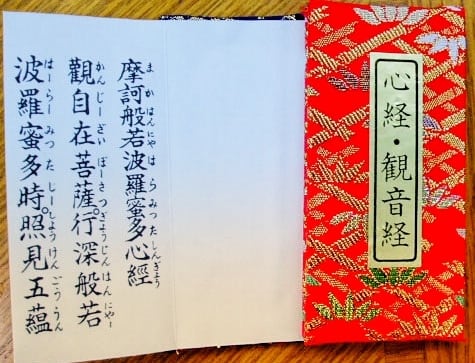 心経・観音経
摩訶般若波羅蜜多心經
まかはんにゃはらみったしんぎょう
觀自在菩薩。行深般若
かんじーざいぼーさつぎょうじんはんにゃー
波羅蜜多時。照見五蘊
はーらーみつたじーしょうけんごーうん